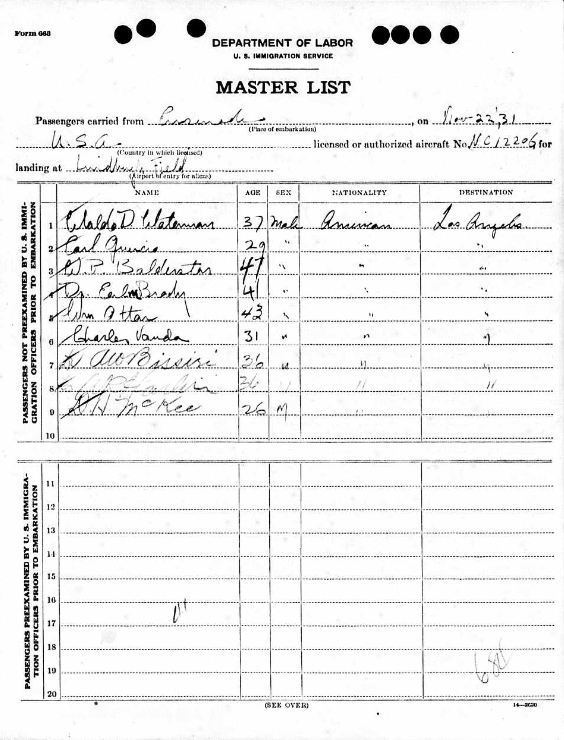 Form 663
DEPARTMENT OF LABOR
U. S. IMMIGRATION SERVICE
MASTER LIST
Passengers carried from Ensenada, on Nov-22,31
(Place of embarkation)
U.S.A. licensed or authorized aircraft No. NC12206 for
(Country in which licensed)
landing at Lindbergh Field
(Airport of entry for aliens)
NAME AGE SEX NATIONALITY DESTINATION
PASSENGERS NOT PREEXAMINED BY U. S. IMMIGRATION OFFICERS PRIOR TO EMBARKATION
1 Waldo D Waterman 37 Male American Los Angeles
2 Earl 29 " " "
3 W. P. Balderston 47 " " "
4 Dr. Earl Brady 41 " " "
5 Wm Ottar 43 " " "
6 Charles Vanda 31 " " "
7 36 " " "
8 36 " " "
9 McKee 26 M " "
10
PASSENGERS PREEXAMINED BY U. S. IMMIGRATION OFFICERS PRIOR TO EMBARKATION
11
12
13
14
15
16
17
18
19
20
(SEE OVER)
14—2620